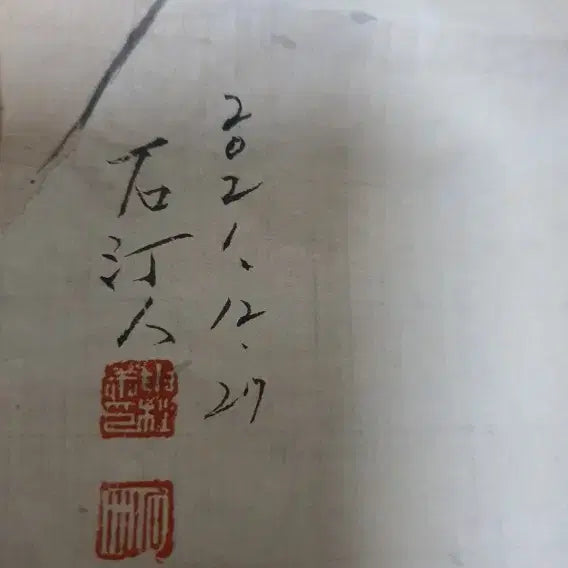 2021.12.27
石汀人